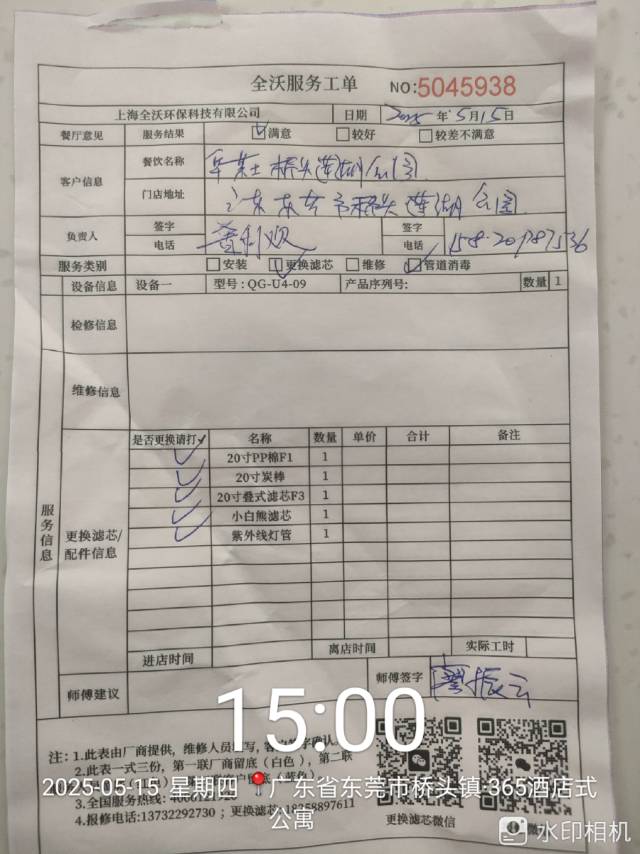 全沃服务工单 NO:5045938
上海全沃环保科技有限公司 日期 2025年5月15日
餐厅意见 服务结果 ☑满意 □较好 □较差不满意
客户信息 餐饮名称 桥头莲湖公园
门店地址 广东东莞市桥头莲湖公园
负责人 签字 签字
电话 电话
服务类别 □安装 ☑更换滤芯 □维修 ☑管道消毒
设备信息 设备一 型号:QG-U4-09 产品序列号: 数量 1
检修信息
维修信息
服务信息
更换滤芯/配件信息
是否更换请打✓ 名称 数量 单价 合计 备注
✓ 20寸PP棉F1 1
✓ 20寸炭棒 1
✓ 20寸叠式滤芯F3 1
✓ 小白熊滤芯 1
✓ 紫外线灯管 1
进店时间 离店时间 实际工时
师傅建议 师傅签字 振云
15:00
注:1.此表由厂商提供，维修人员填写，客户签字确认
2.此表一式三份，第一联厂商留底（白色），第二联
2025-05-15 星期四 广东省东莞市桥头镇·365酒店式
公寓
3.全国服务热线:
4.报修电话:13732292730；更换滤芯:18358897611
更换滤芯微信
水印相机